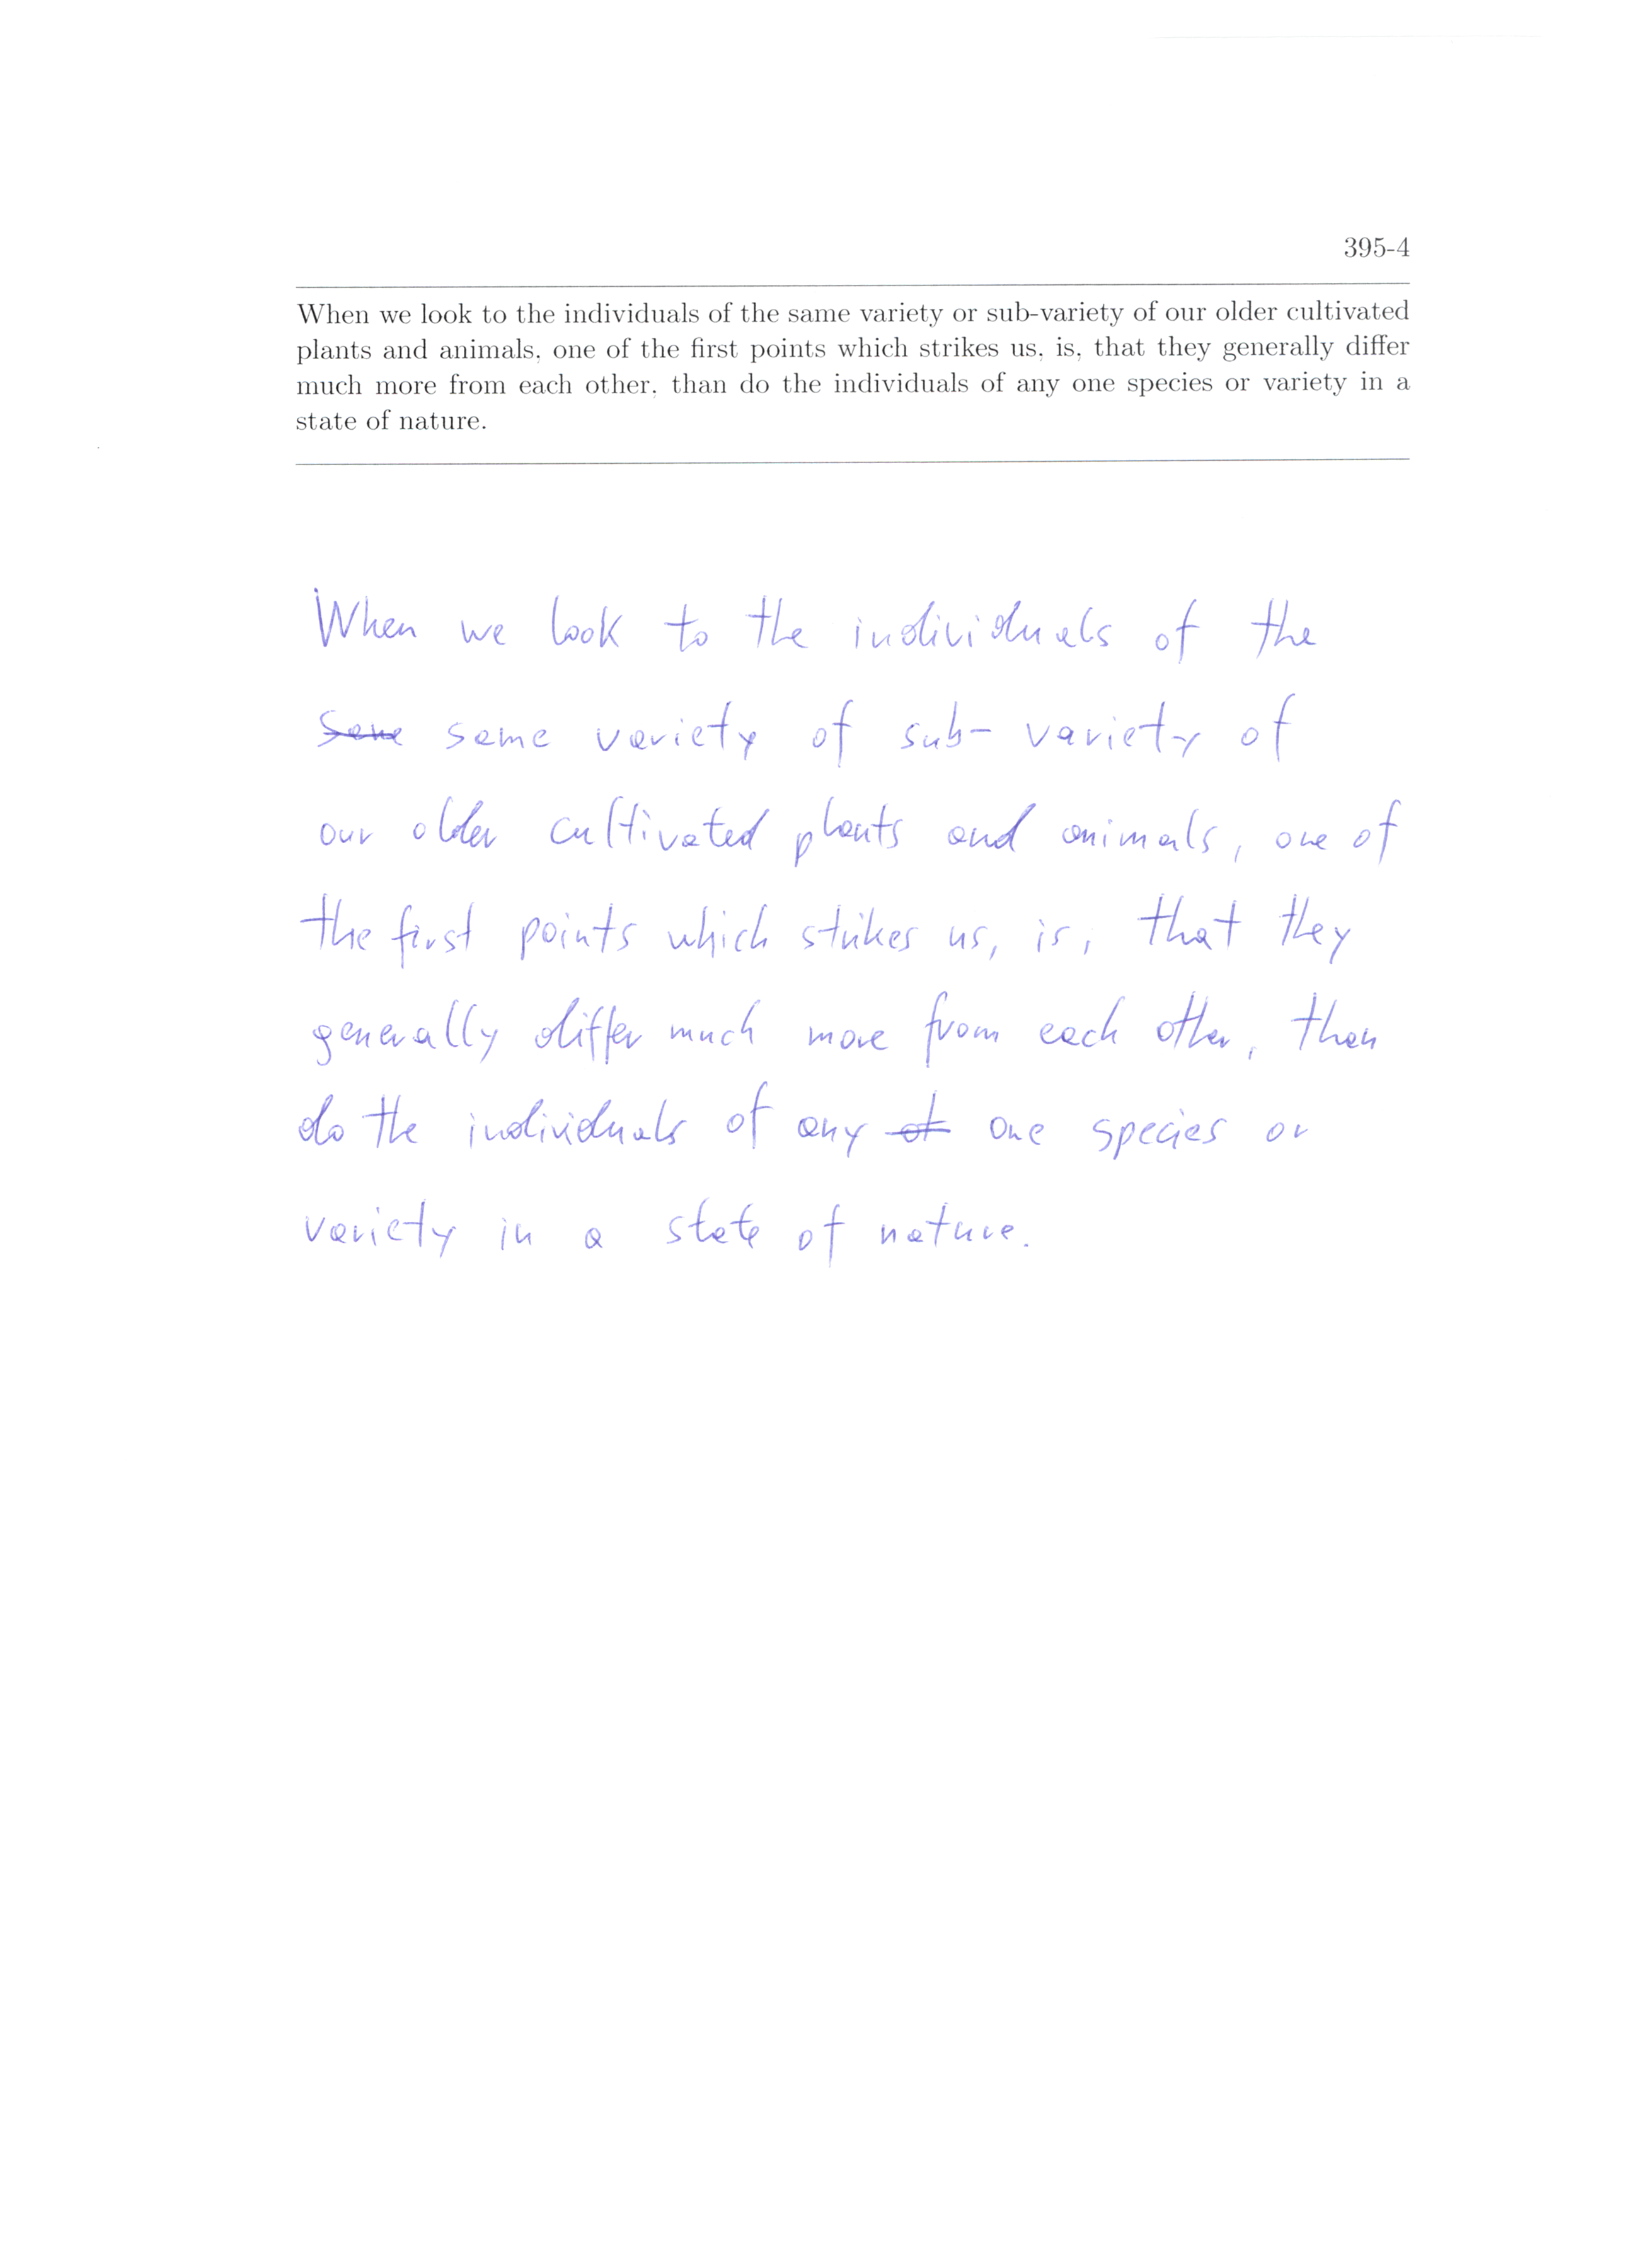 395-4
When we look to the individuals of the same variety or sub-variety of our older cultivated
plants and animals, one of the first points which strikes us, is, that they generally differ
much more from each other, than do the individuals of any one species or variety in a
state of nature.
When we look to the individuals of the
same variety of sub-variety of
our older cultivated plants and animals, one of
the first points which strikes us, is, that they
generally differ much more from each other, than
do the individuals of any one species or
variety in a state of nature.